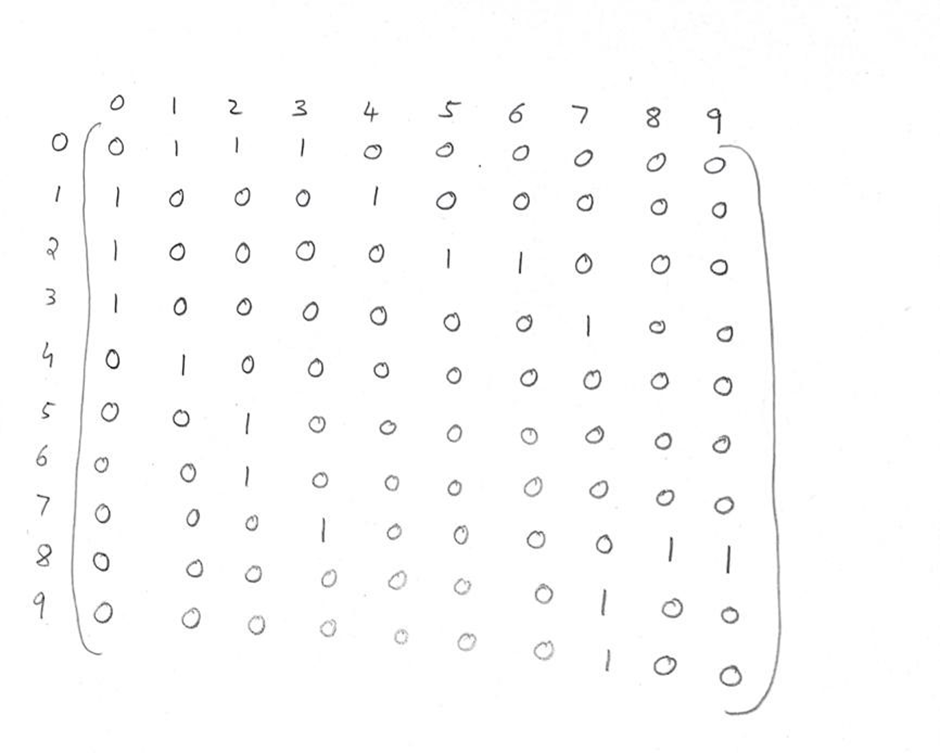 0 1 2 3 4 5 6 7 8 9
0 0 1 1 1 0 0 0 0 0 0
1 1 0 0 0 1 0 0 0 0 0
2 1 0 0 0 0 1 1 0 0 0
3 1 0 0 0 0 0 0 1 0 0
4 0 1 0 0 0 0 0 0 0 0
5 0 0 1 0 0 0 0 0 0 0
6 0 0 1 0 0 0 0 0 0 0
7 0 0 0 1 0 0 0 0 1 1
8 0 0 0 0 0 0 0 1 0 0
9 0 0 0 0 0 0 0 1 0 0